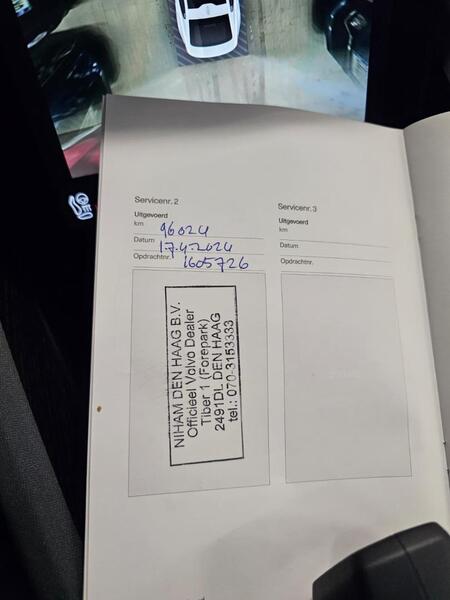 Servicenr. 2
Uitgevoerd
km 96024
Datum 17.4.2024
Opdrachtnr. 1605726
NIHAM DEN HAAG B.V.
Officieel Volvo Dealer
Tiber 1 (Forepark)
2491DL DEN HAAG
tel.: 070-3153333
Servicenr. 3
Uitgevoerd
km
Datum
Opdrachtnr.